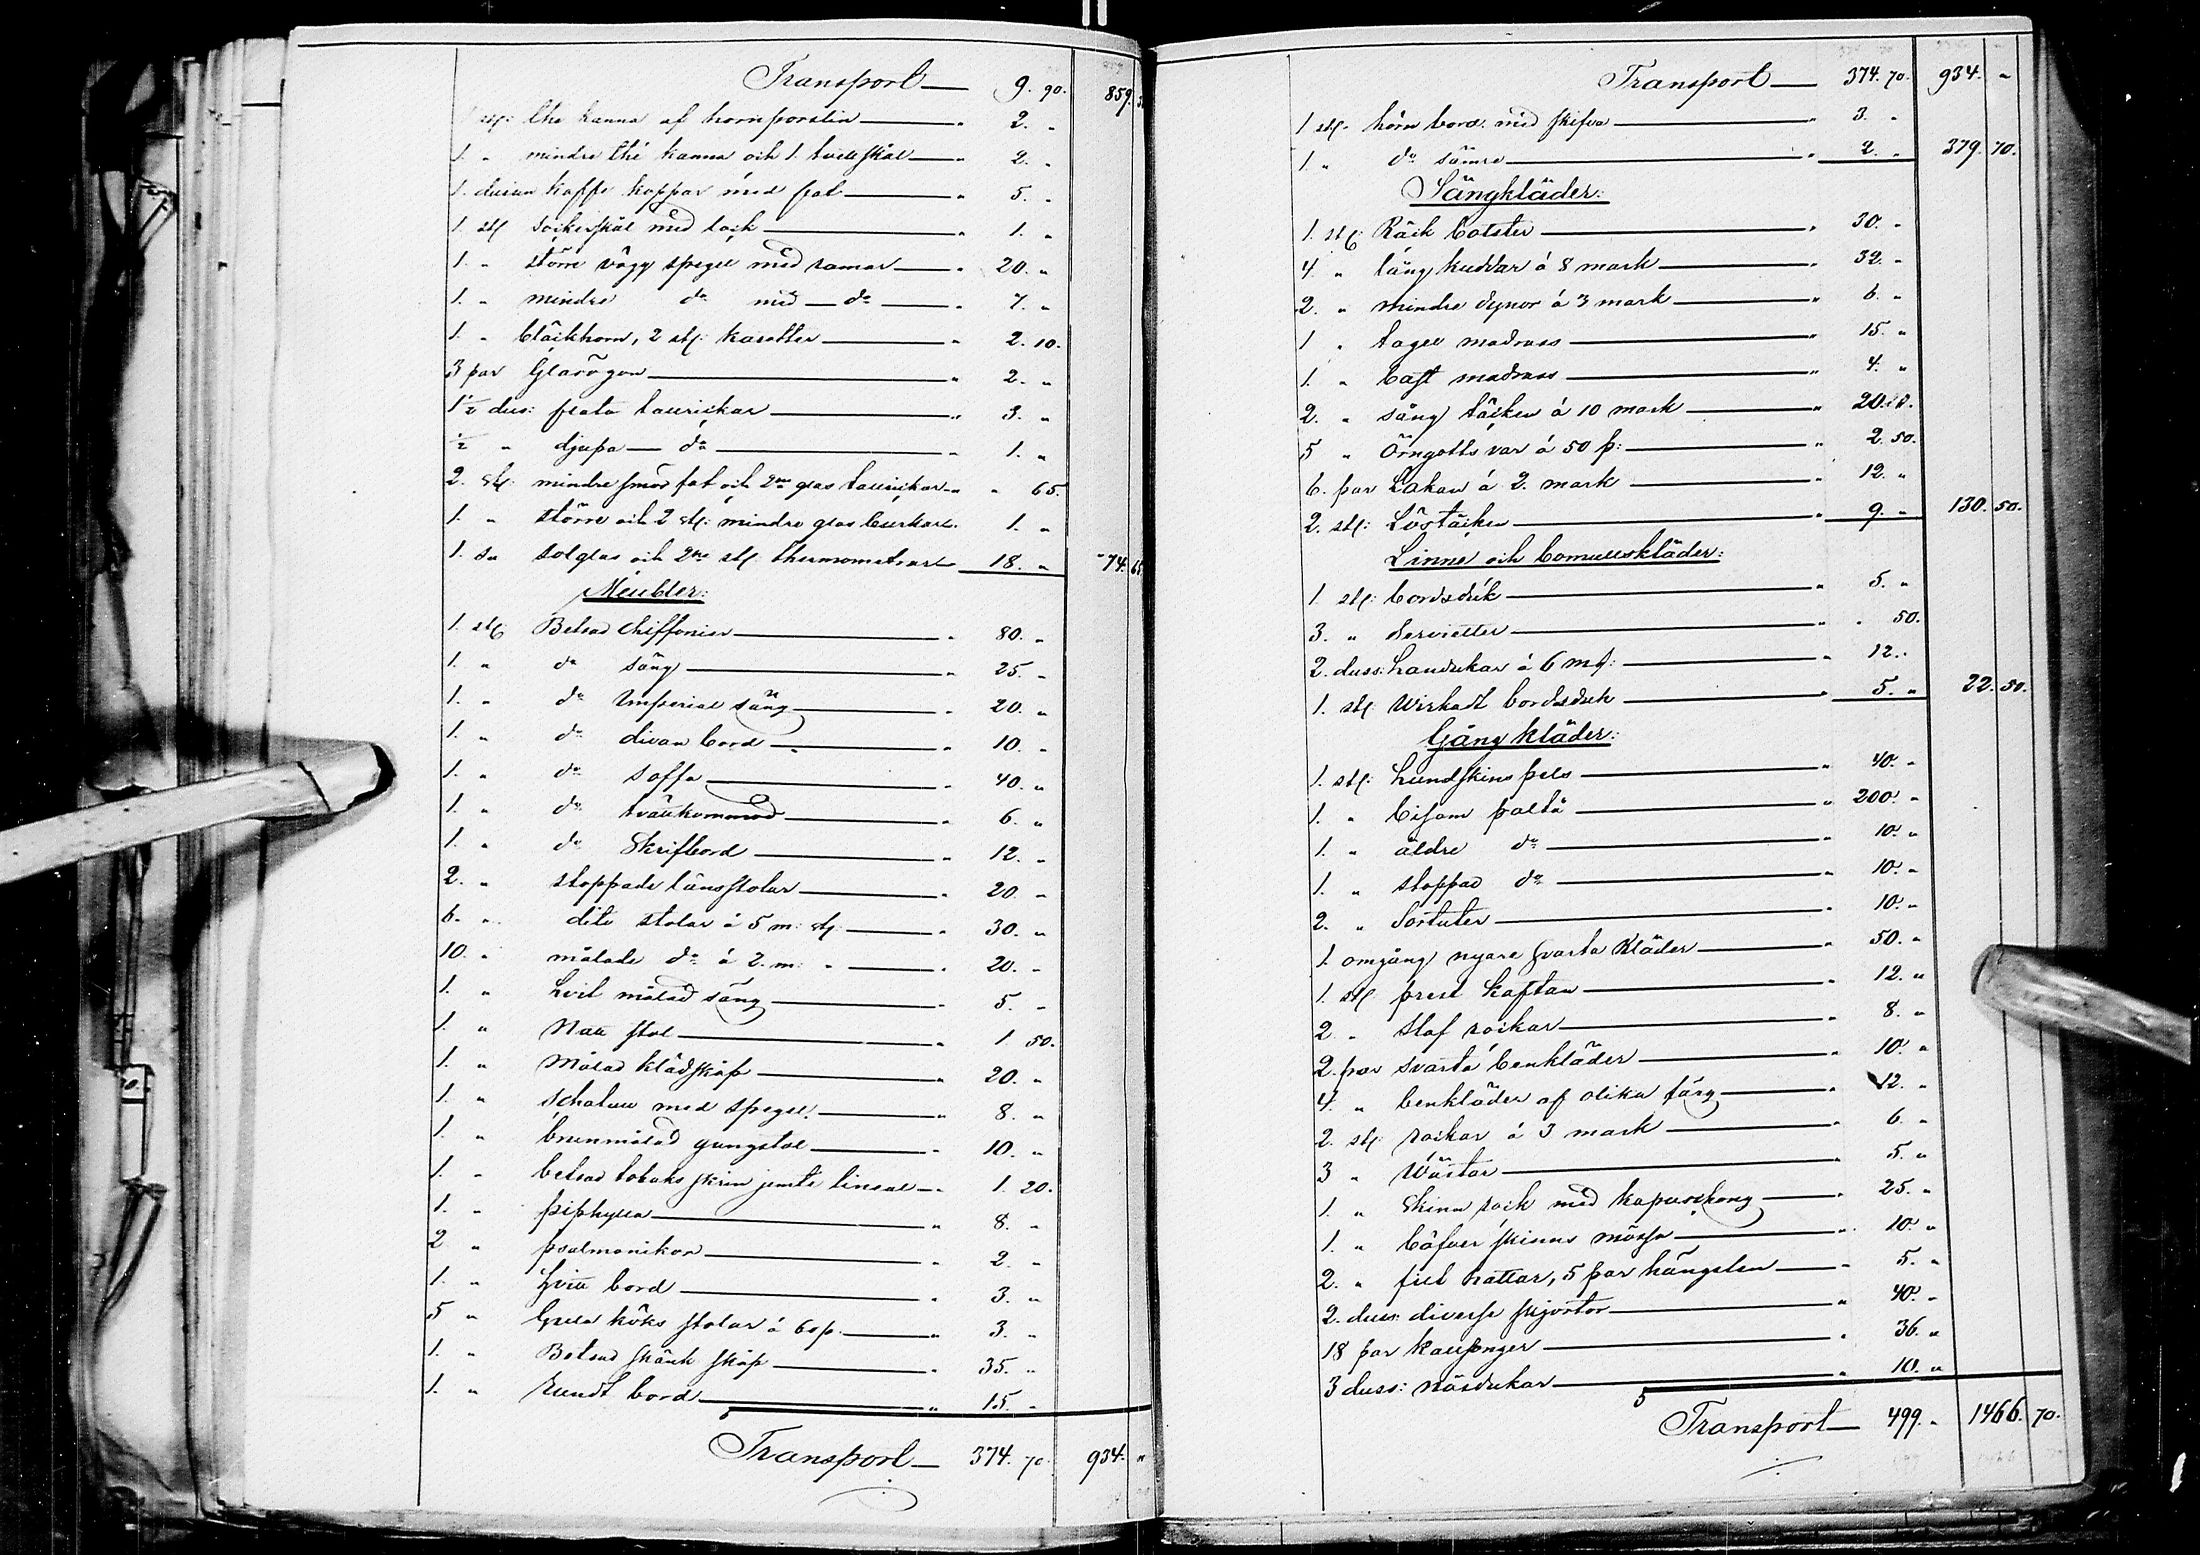 Transport — 9. 90. 859. 3
1 stk: the kanna af hornporslin — " 2. "
1. " mindre thé kanna och 1. tvellskål — " 2. "
1. dusin kaffe koppar med fat — " 5. "
1. stk sockerskål med lock — " 1. "
1. " större vägg spegel med ramar — " 20. "
1. " mindre do med — do — " 7. "
1. " bläckhorn, 2 stk: karotter — " 2. 10.
3 par Glasögon — " 2. "
1 1/2 dus: flata taurickar — " 3. "
1/2 " djupa — do — " 1. "
2. stk: mindre smör fat och 2ne glas taurickar — " " 65.
1. " större och 2 stk: mindre glas burkar — 1. "
1. do solglas och 2ne stk. thermometrar — 18. " " 74. 65
Meubler:
1. stk: Betsad Chiffonier — " 80. "
1. " do säng — " 25. "
1. " do Imperial säng — " 20. "
1. " do divan bord — " 10. "
1. " do soffa — " 40. "
1. " do tvättkommod — " 6. "
1. " do Skrifbord — " 12. "
2. " stoppade länsstolar — " 20. "
6. " dito stolar á 5 m: stk. — " 30. "
10. " målade do á 2. m: " — " 20. "
1. " hvit målad säng — " 5. "
1. " Natt stol — " 1 50.
1. " Målad klädskåp — " 20. "
1. " schatull med spegel — " 8. "
1. " brunmålad gungstol — " 10. "
1. " betsad tobaks skrin jemte lineal — " 1. 20.
1. " piphylla — " 8. "
2 " psalmonikor — " 2. "
1. " hvitt bord — " 3. "
5 " Gula köks stolar á 60p. — " 3. "
1. " Betsad skänk skåp — " 35. "
1. " rundt bord — " 15. "
Transport — 374. 70. 934. "
Transport — 374. 70. 934. "
1 stk. hörn bord med skifva — " 3. "
1. " do sämre — " 2. " 379. 70.
Sängkläder:
1. stk: Räck bolster — " 30. "
4. " lång kuddar á 8 mark — " 32. "
2. " mindre dynor á 3 mark — " 6. "
1 " tagel madrass — " 15. "
1. " bast madrass — " 4. "
2. " säng täcken á 10 mark — " 20. "
5 " Örngotts var á 50 p: — " 2. 50.
6. par Lakan á 2. mark — " 12. "
2. stk: Löstäcken — " 9. " 130. 50.
Linne och bomullskläder:
1. stk: bordsduk — " 5. "
3. " Servietter — " " 50.
2. duss: handukar á 6 mk: — " 12. "
1. stk: Wirkadt bordsduk — " 5. " 22. 50.
Gång kläder:
1. stk: hundskins pels — " 40. "
1. " bisam paltå — " 200. "
1. " äldre do — " 10. "
1. " stoppad do — " 10. "
2. " Sortuter — " 10. "
1. omgång nyare svarta Kläder — " 50. "
1. stk prest kaftan — " 12. "
2 " Slaf rockar — " 8. "
2. par svarta benkläder — " 10. "
4. " benkläder af olika färg — " 12. "
2. stk: rockar á 3 mark — " 6. "
3 " Wästar — " 5. "
1. " Skinn rock med kapuschong — " 25. "
1. " bäfver skinns mössa — " 10. "
2. " filt hattar, 5 par hängslen — " 5. "
2. duss: diverse skjortor — " 40. "
18 par kalsonger — " 36. "
3 duss: näsdukar — " 10. "
Transport — 499. " 1466. 70.